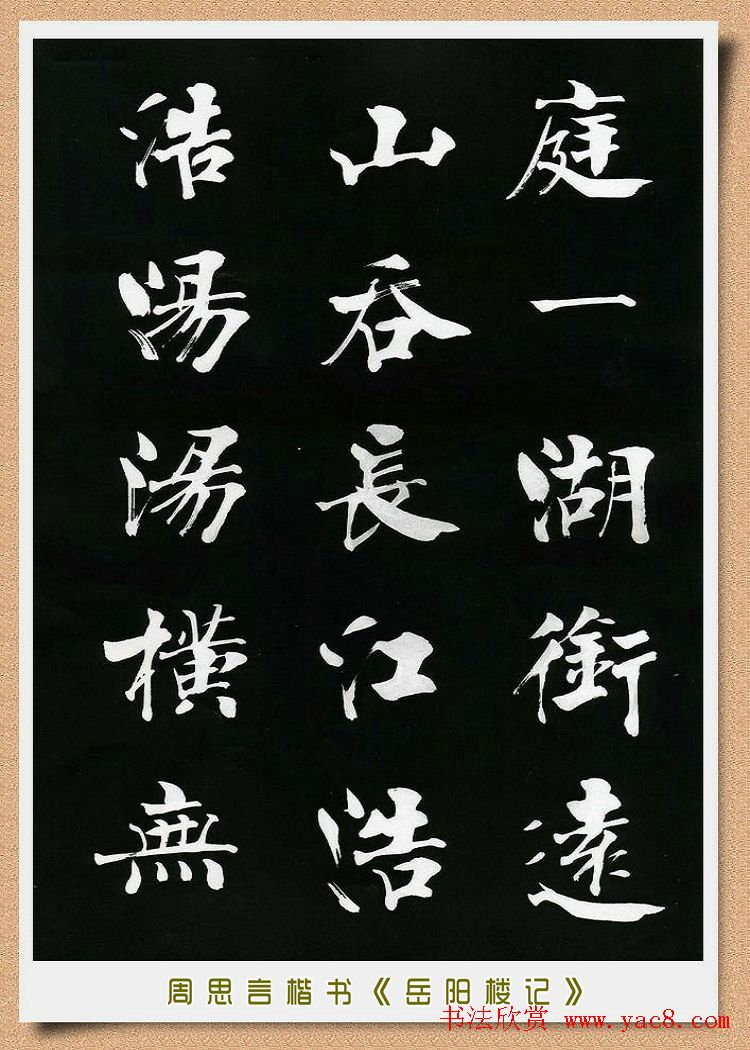 庭一湖銜遠
山吞長江浩
浩湯湯橫無
周思言楷书《岳阳楼记》
书法欣赏 www.yac8.com